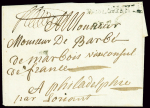 A Monsieur
Monsieur De Barbé
de marbois viceconsul
de france
A philadelphie
par Lorient